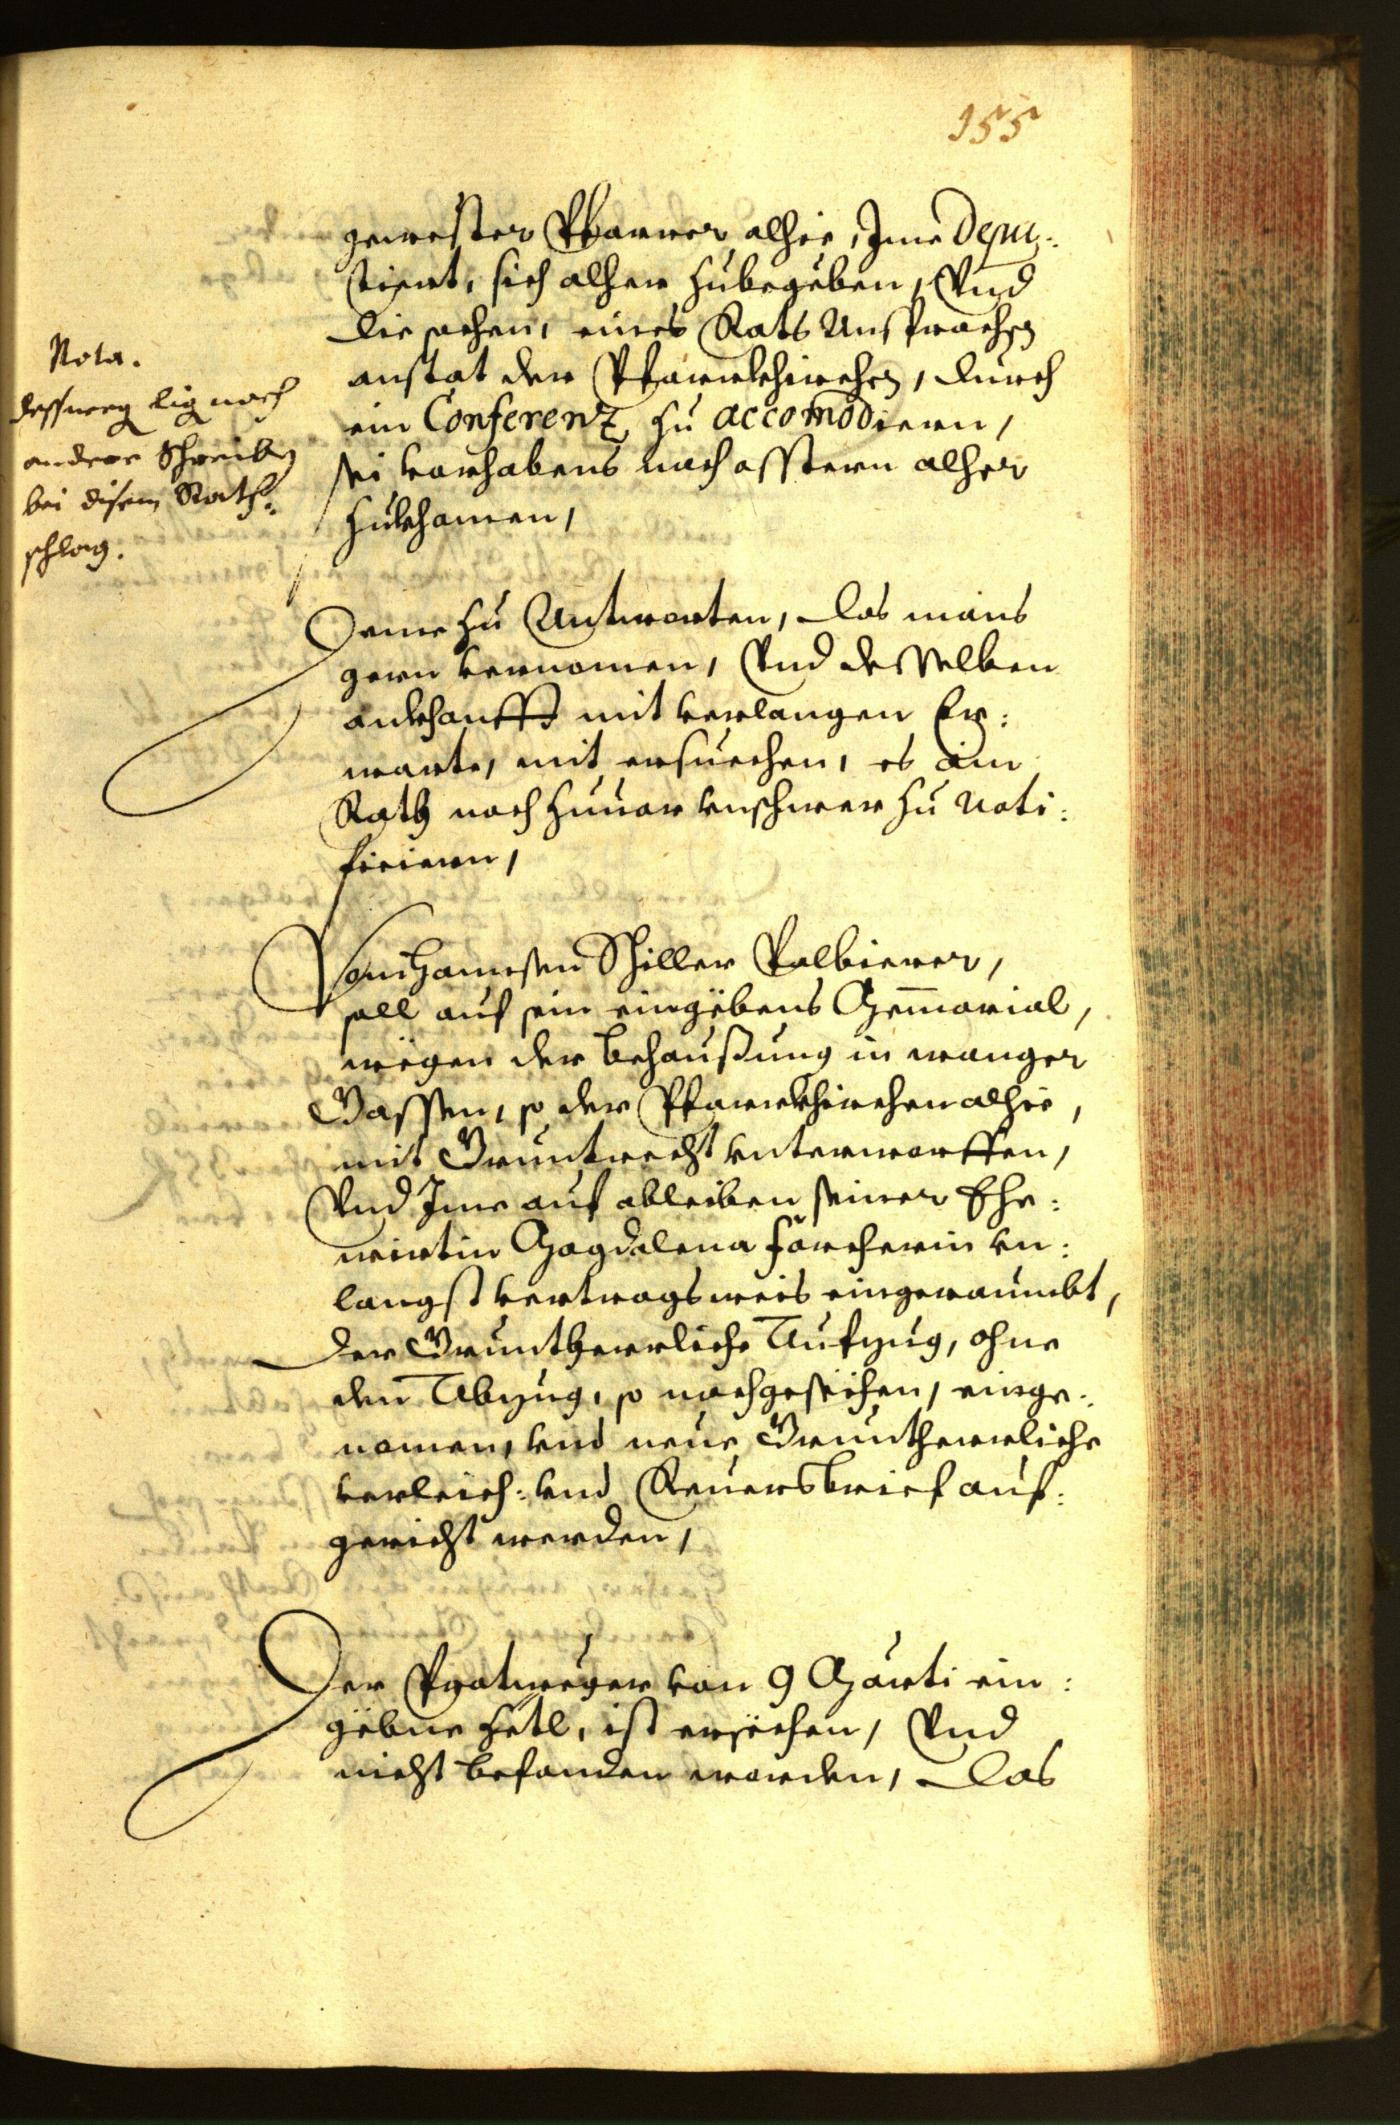 155
gewester Pfarrer alhie, Ime Depu:
tiert, sich alher zubegeben, Vnd
die sachen, eines Rats Ansprachen
anstat der Pfarrkhirchen, durch
ein Conferenz, zu accomodiern,
sei vorhabens nach osstern alher
zukhomen,
Nota.
dessweg lig noch
andere Schreiben
bei disem Rath-
schlag.
Deme zu Antworten, das mans
gern vernomen, Vnd desselben
ankhonfft mit verlangen Er:
warte, mit ersuechen, es ain
Rath noch zuuor vnschwer zu noti:
ficiern,
Vom Hannsen Schiller Palbierer,
soll auf sein eingebens Memorial,
wegen der behaußung in wanger
Gassen, so der Pfarrkhirchen alhie,
mit Gruntrecht vnterworffen,
Vnd Ime auf ableiben seiner Ehe:
wirtin Magdalena Färcherin vn:
langst vertragsweis eingeraumbt,
der Gruntherrliche Aufzug, ohne
den Abzug, so nachgesechen, einge:
nomen, vnd neue Gruntherrliche
verleich: vnd Reuersbrief auf:
gericht werden,
Der Protweger von 9 Marti ein:
gebne Zetl, ist ersechen, Vnd
nicht befonden worden, das